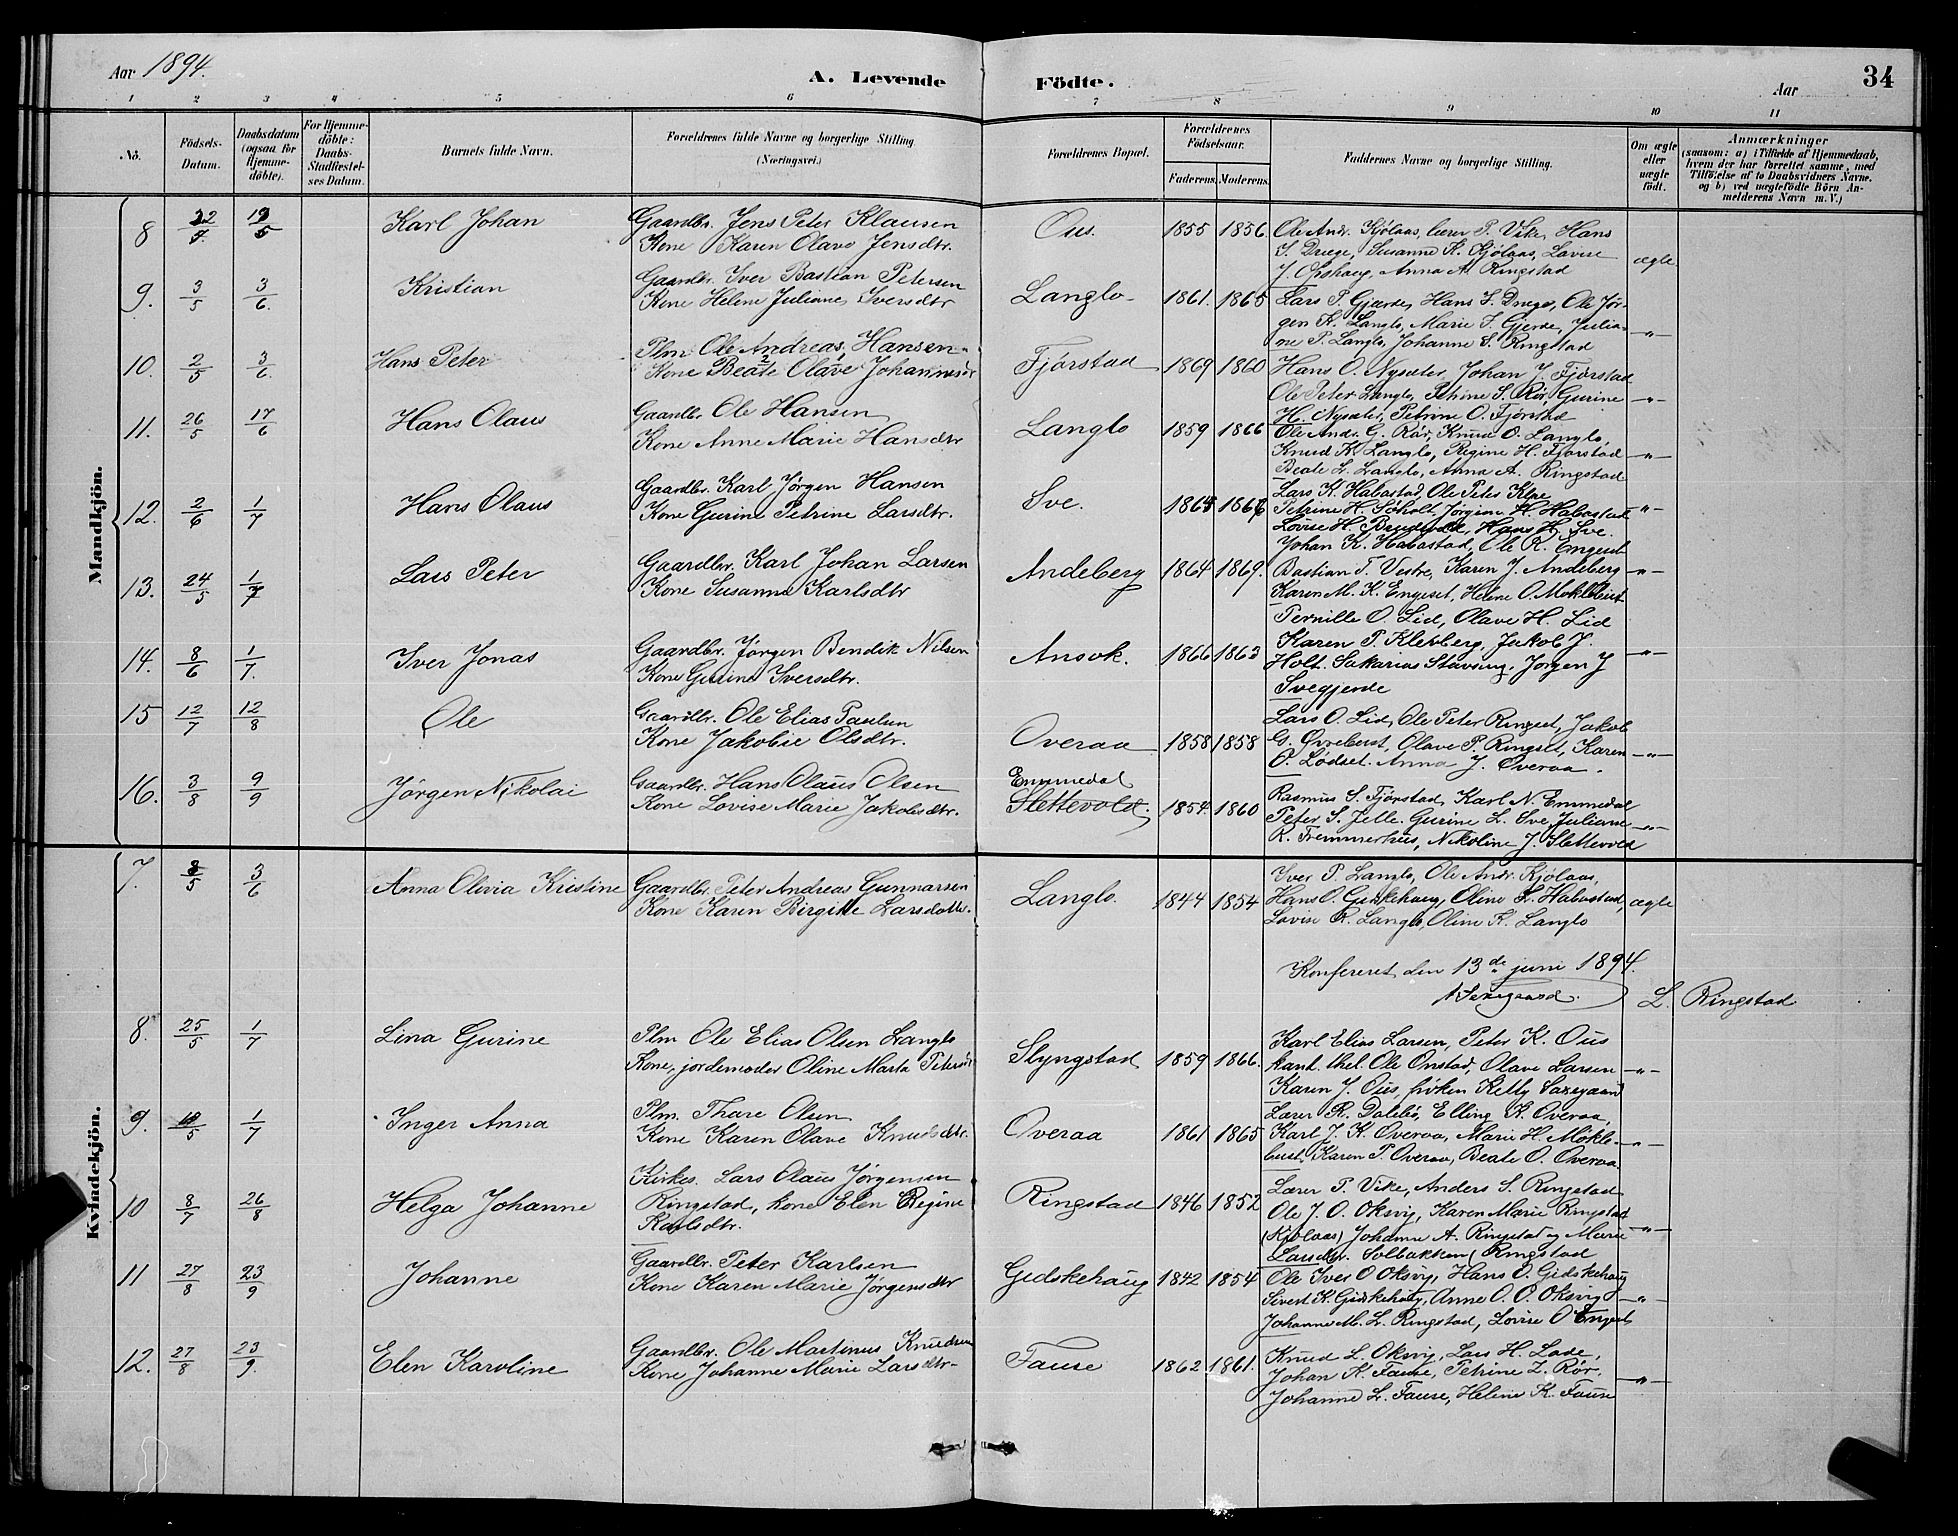 Aar 1894.
A. Levende
Födte.
Aar
34
1 2 3 4 5 6 7 8 9 10 11
No.
Födsels-Datum.
Daabsdatum (ogsaa for Hjemme-döbte).
For Hjemme-döbte: Daabs-Stadfæstel-ses Datum.
Barnets fulde Navn.
Forældrenes fulde Navne og borgerlige Stilling. (Næringsvei.)
Forældrenes Bopæl.
Forældrenes Födselsaar.
Faderens. Moderens.
Faddernes Navne og borgerlige Stilling.
Om ægte eller uægte födt.
Anmærkninger
(saasom: a) i Tilfælde af Hjemmedaab, hvem der har forrettet samme, med Tilföielse af to Daabsvidners Navne, og b) ved uægtefödte Börn An-melderens Navn m. V.)
Mandkjön.
8 Karl Johan Gaardbr. Jens Peter Klausen Ous. 1855 1856. Ole Andr. Kjølaas, lærer P. Vike, Hans
Kone Karen Olave Jensdtr. S. Drege, Susanne K. Kjølaas, Lovise ægte
J. Opshaug, Anna A. Ringstad
9. 3/5 3/6. Kristian Gaardbr. Iver Bastian Petersen Langlo 1861. 1865 Lars P. Gjærde, Hans S. Drege, Ole Jør-
Kone Helene Juliane Iversdtr gen K. Langlo, Marie S. Gjerde, Julia- -"-
ne P. Langlo, Johanne S. Ringstad
10. 2/5 3/6. Hans Peter Plm Ole Andreas Hansen Fjørstad 1869 1860 Hans O. Nysæter, Johan J. Fjørstad
Kone Beate Olave Johannesdtr Ole Peter Langlo, Petrine S. Rör, Gurine -"-
H. Nysæter, Petrine O. Fjørstad
11. 26/5 17/6 Hans Olaus Gaardbr. Ole Hansen Langlo 1859 1866 Ole Andr. G. Rör, Knud O. Langlo,
Kone Anne Marie Hansdtr Knud K. Langlo, Regine H. Fjørstad -"-
Beate L. Langlo, Anna A. Ringstad
12. 2/6 1/7 Hans Olaus Gaardbr. Karl Jørgen Hansen Sve. Lars K. Habostad, Ole Peter
Kone Gurine Petrine Larsdtr. Petrine H. Søholt, Jørgine H. Habostad -"-
Lovise H. Hans H. Sve.
13. 24/5 1/7 Lars Peter Gaardbr. Karl Johan Larsen Andeberg 1864 1869. Johan K. Habostad, Ole R. Engeset
Kone Susanne Karlsdtr Bastian T. Vestre, Karen J. Andeberg -"-
Karen M. K. Engeset, Helene O. Moklebust
14. 8/6 1/7. Iver Jonas Gaardbr. Jørgen Bendik Nilsen Ansok. 1866 1863 Pernille O. Lid, Olave H. Lid
Kone Gurine Iversdtr. Karen P. Klevberg, Jakob J. -"-
Holt. Sakarias Staving, Jørgen J
Svegjerde
15 12/7 12/8 Ole Gaardbr. Ole Elias Paulsen Overaa 1858 1858 Lars O. Lid, Ole Peter Ringset, Jakob
Kone Jakobie Olsdtr. G. Øvrebust, Olave P. Ringset, Karen -"-
O. Lødset. Anna J. Overaa.
16. 3/8 9/9 Jørgen Nikolai Gaardbr. Hans Olaus Olsen Emmedal
Kone Lovise Marie Jakobsdtr. Slettevold. 1854. 1860 Rasmus S. Fjørstad, Karl N. Emmedal
Peter S. Jelle. Gurine L. Sve, Juliane -"-
R. Fremmerhus, Nikoline J. Slettevold
Kvindekjön.
7. 3/6 Anna Olivia Kristine Gaardbr. Peter Andreas Gunnarsen Langlo. 1844 1854 Iver P. Langlo, Ole Andr. Kjölaas,
Kone Karen Birgitte Larsdotter. Hans O. Gidskehaug, Oline S. Habostad, ægte
Lovise R. Langlo, Oline K. Langlo
Konfereret den 13de juni 1894.
L. Ringstad
8. 25/5 1/7 Lina Gurine Plm Ole Elias Olsen Langlo Slyngstad 1859 1866. Karl Elias Larsen, Peter K. Ous
Kone, jordemoder Oline Marta kand. theol. Ole Onstad, Olave Larsen -"-
Karen J. Ous, frøken Kelly Saxegaard
9. 1/7 Inger Anna Plm. Thare Olsen Overaa 1861 1865 Lærer R. Dalebö, Elling K. Overaa,
Kone Karen Olave Knudsdtr. Karl J. K. Overaa, Marie H. Mökle- -"-
bust. Karen P. Overaa, Beate O. Overaa.
10 8/7 26/8 Helga Johanne Kirkes. Lars Olaus Jørgensen Ringstad 1846 1852 Lærer P. Vike, Anders S. Ringstad
Ringstad, kone Elen Regine Ole J. O. Oksvig, Karen Marie Ringstad
Karlsdtr. (Kjölaas) Johanne A. Ringstad og Marie -"-
Larsdtr. Solbakken (Ringstad
11 27/8 23/9 Johanne Gaardbr. Peter Karlsen Gidskehaug 1842 1854 Ole Iver O Oksvig, Hans O. Gidskehaug
Kone Karen Marie Jörgensdtr Sivert K. Gidskehaug, Anne O. O. Oksvig -"-
Johanne M. L. Ringstad, Lovise O Engset
12. 27/8 23/9 Elen Karoline Gaardbr. Ole Martinus Knudsen Fause 1862 1861. Knud L. Oksvig, Lars H. Lade,
Kone Johanne Marie Larsdtr Johan K. Fause, Petrine L. Rör. -"-
Johanne L. Fause, Helene K. Fause